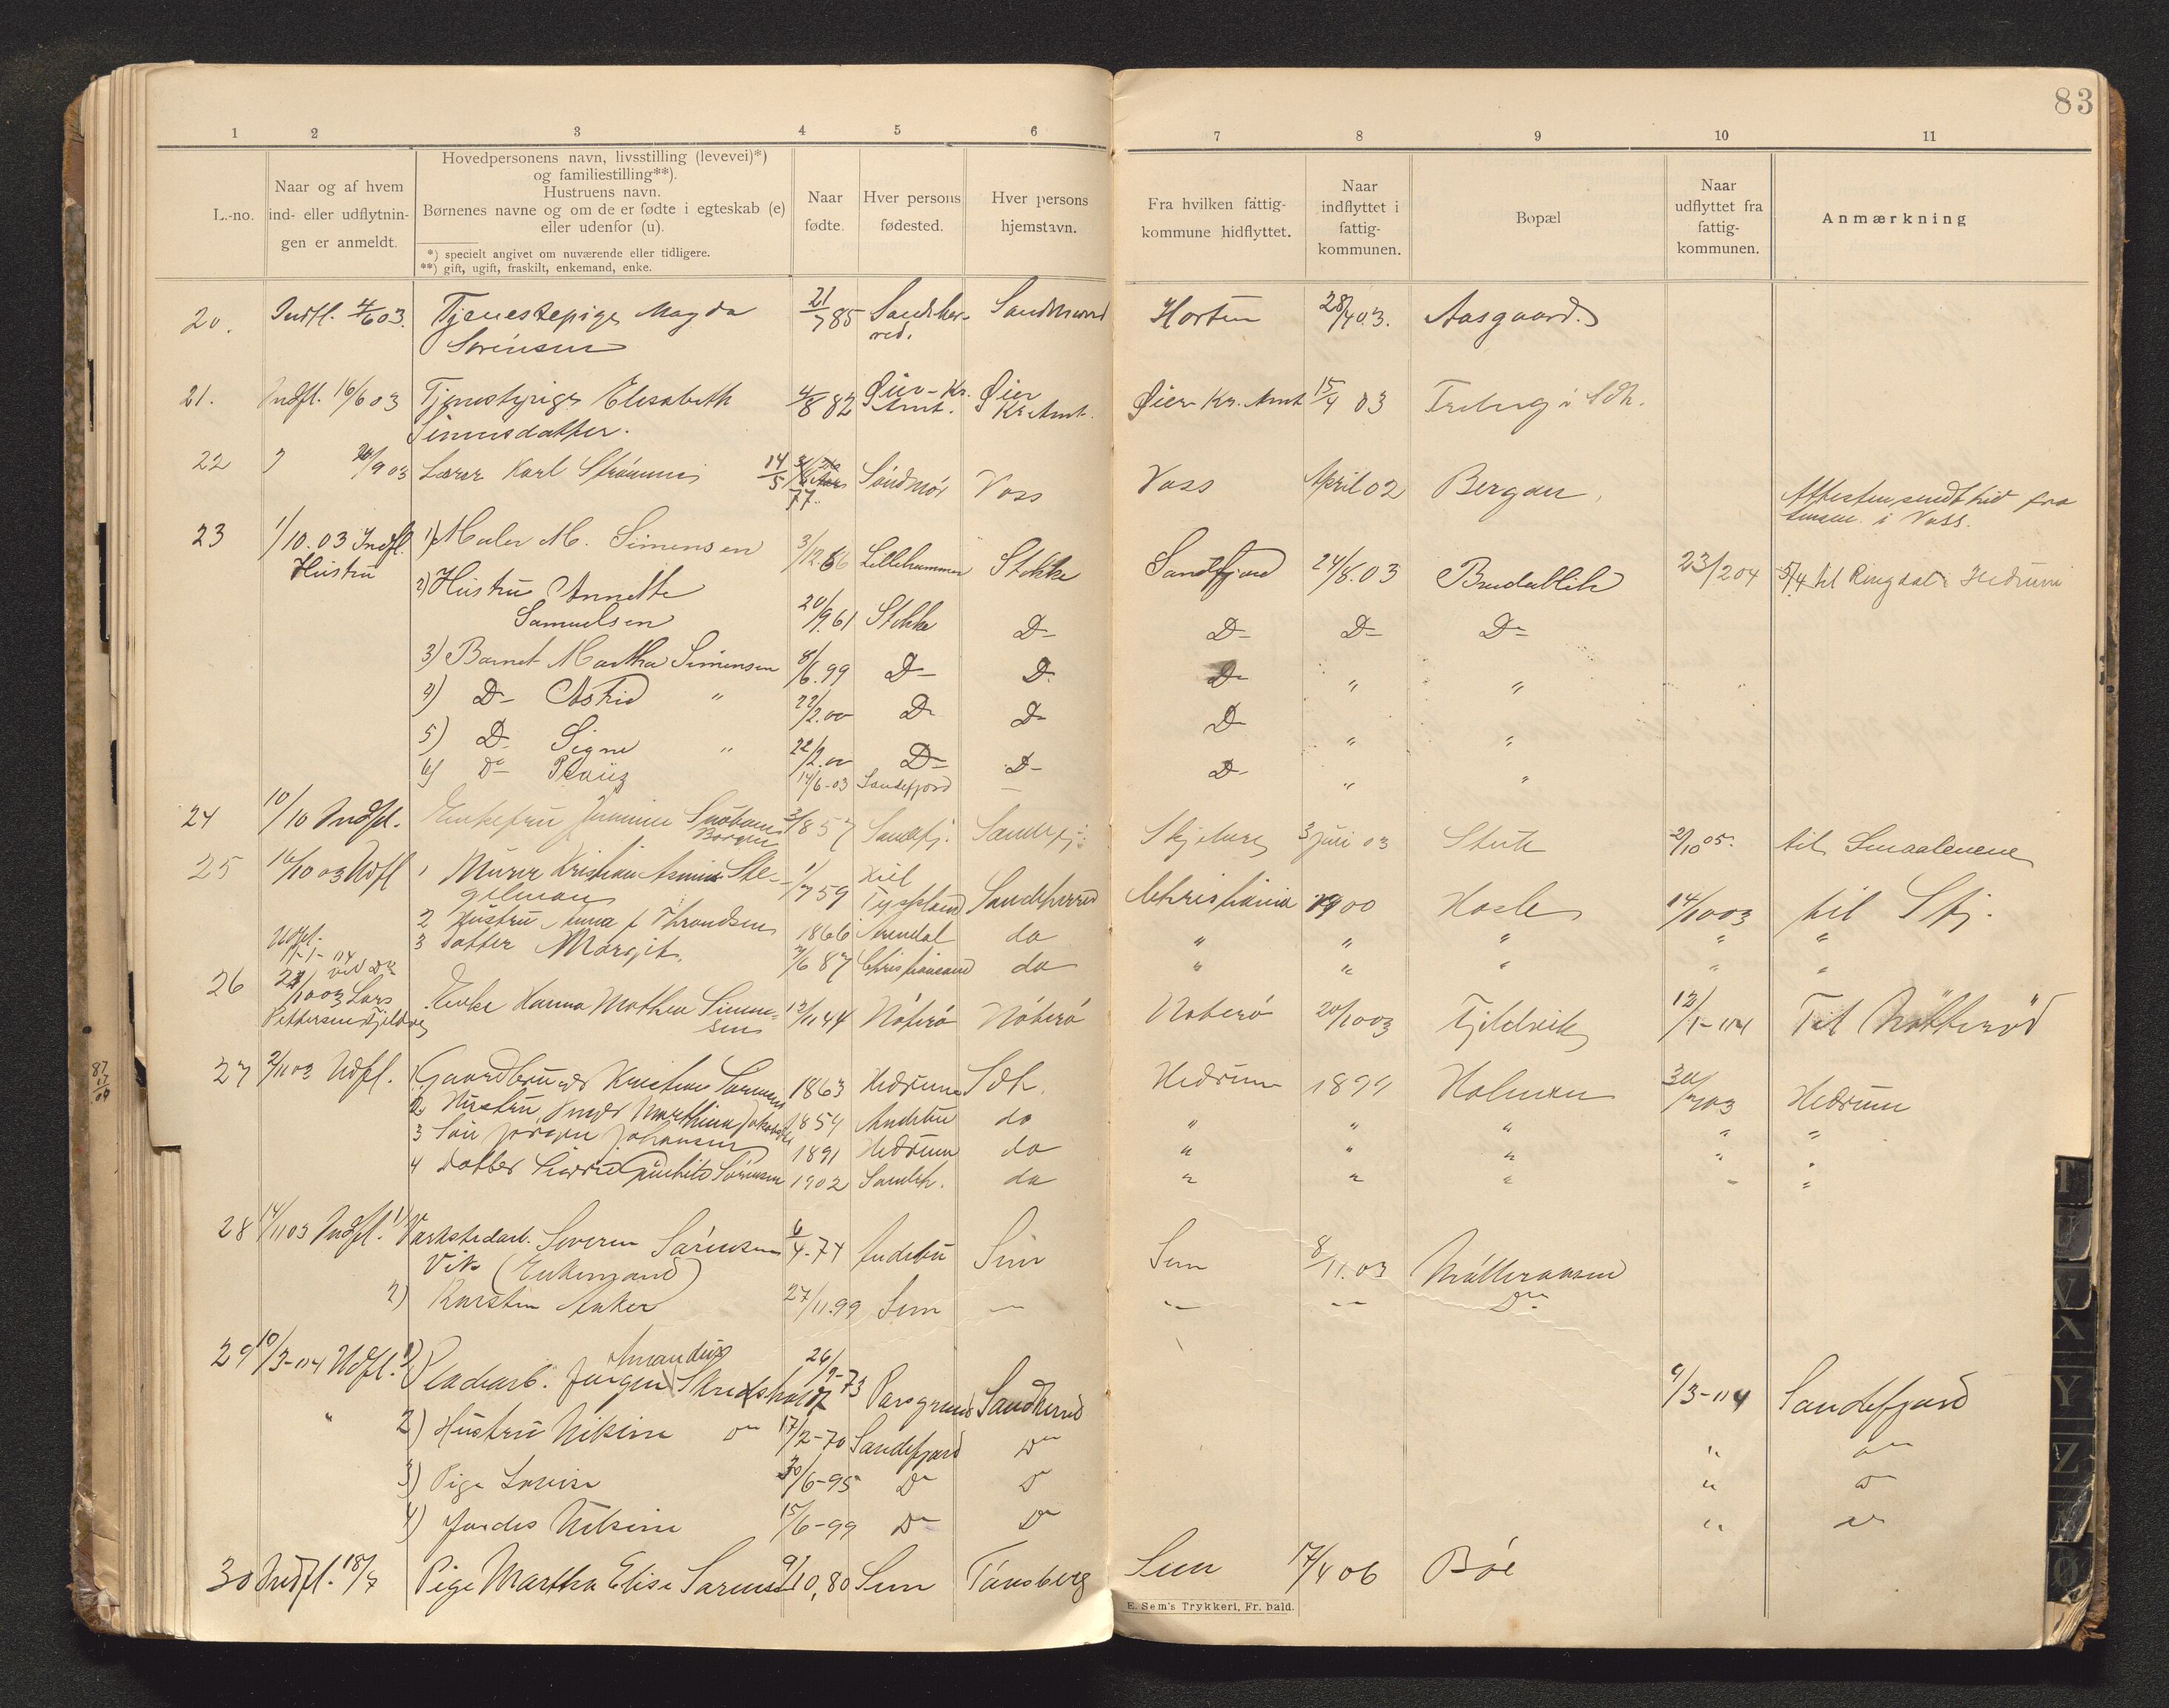 83
1 2 3 4 5 6 7 8 9 10 11
L.-no.
Naar og af hvem
ind- eller udflytnin-
gen er anmeldt.
Hovedpersonens navn, livsstilling (levevei)*)
og familiestilling**).
Hustruens navn.
Børnenes navne og om de er fødte i egteskab (e)
eller udenfor (u).
*) specielt angivet om nuværende eller tidligere.
**) gift, ugift, fraskilt, enkemand, enke.
Naar
fødte.
Hver persons
fødested.
Hver persons
hjemstavn.
Fra hvilken fattig-
kommune hidflyttet.
Naar
indflyttet i
fattig-
kommunen.
Bopæl
Naar
udflyttet fra
fattig-
kommunen.
Anmærkning
20. Indfl. 4/6 03. Tjenestepige Magda 21/7 85 Sandher- Sandherred Horten 28/4 03. Aasgaard.
Sørensen red.
21. Indfl. 16/6 03 Tjenestepige Elisabeth 4/8 82 Øier-Kr. Øier Øier Kr. Amt 15/4 03 Freberg i Sdh.
Simensdatter. Amt. Kr. Amt.
22 20/9 03 Lærer Karl Strømmei 14/5 77 Søndmør Voss Voss April 02 Bergan Attesten sendt hid fra
i Voss.
23 1/10.03 Indfl. 1) Maler M. Simensen 3/12 66 Lillehammer Stokke Sandefjord 24/8.03 Bredablik 23/2 04 5/4 til Ringdal i Hedrum
Hustru 2) Hustru Annette
Samuelsen 20/9.61 Stokke D- D- D- D-
3) Barnet Martha Simensen 8/6.99 D- D. D- " "
4) D- Astrid " 22/2.00 D- D- D- " "
5) D- Signe " 22/2.00 D- D- D- " "
6) D- 14/6-03 Sandefjord
24 10/10 Indfl. Enkefru 3/8 57 Sandefj. Sandefj. Skjeberg 3 juni 03 Stub 2/10 05. til Smaalenene
Borgen
25 16/10 03 Udfl 1 Murer Kristian Asmus Ste- 1/7 59 Kiel Sandeherred Christiania 1900 Hasle 14/10 03 til Sfj.
gelman Tyskland
2 Hustru Anna f Throndsen 1866 Arendal do " " " " "
3 Datter Margit. 2/6 87 Christiansand do " " " " "
Udfl.
26 21/10 03 Lars Enke Hanna Mathea Simen- 12/11 44 Nøterø Nøterø Nøterø 20/10 03 Fjeldvik 12/1-04 Til Nøtterød
Pettersen Fjeldvig sen
27 2/11 03 Udfl. 1 Gaardbruger Kristian Sørensen 1863 Hedrum Sdh. Hedrum 1899 Holmen Hedrum
2 Hustru Inger Marthine Jakobsd 1854 Andebu do " " " " "
3 Søn Jørgen Johansen 1891 Hedrum do " " " " "
4 Datter Gunhild Sørensen 1902 Sandeh. do " " " " "
28 14/11 03 Indfl. 1) Værkstedarb. Severin Sørensen 6/4.74 Andebu Sem Sem 8/11.03 Møllerånsen
Vik (Enkemand)
2) Karsten Anker 27/11.99 Sem — — — Do
29 10/3-04 Udfl. 1) Pladearb. Jørgen Amandus Skredsholdt 26/9-73 Porsgrund Sandherred 9/3-04 Sandefjord
" 2) Hustru Nikine Do 17/2-70 Sandefjord Do " Do
3) Pige Lovise 30/6-95 Do D " D
4) Jordis Nikine 15/6-99 Do Do " D
30 Indfl. 18/7 Pige Martha Elise Sørensen 9/10,80 Sem Tønsberg Sem 17/4 06 Bøe
E. Sem's Trykkeri, Fr. hald.
87
17
09
T
U
V
X
Y
Z
Ø